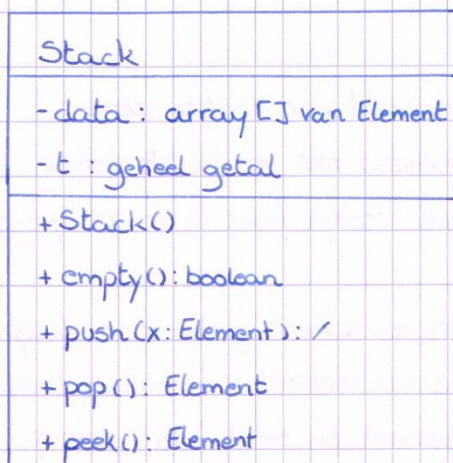 Stack
- data : array [] van Element
- t : geheel getal
+ Stack()
+ empty(): boolean
+ push(x: Element): /
+ pop(): Element
+ peek(): Element